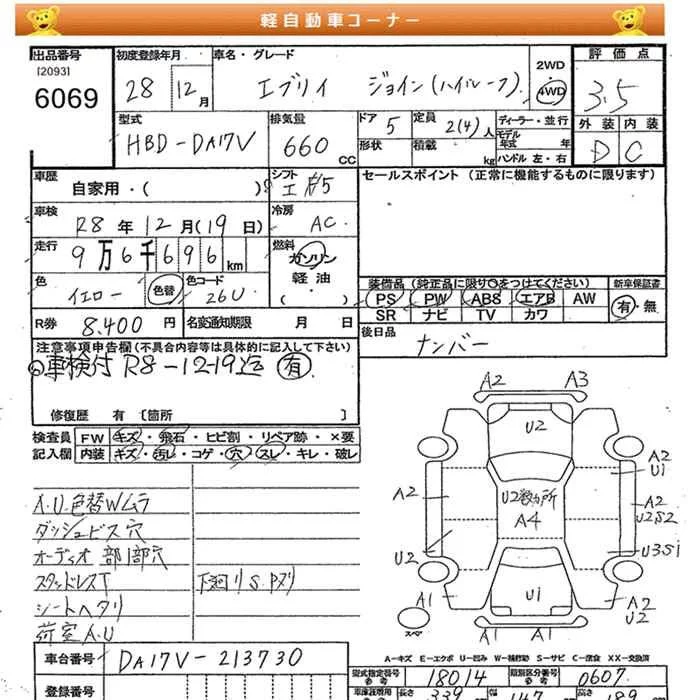 軽自動車コーナー
出品番号
[2093]
6069
初度登録年月
28 12月
車名・グレード
エブリイ ジョイン(ハイルーフ)
2WD
4WD
評価点
3.5
外装 内装
D C
型式
HBD-DA17V
排気量
660 CC
ドア 5
形状
定員 2(4)人
積載 kg
ディーラー・並行
モデル年式 年
ハンドル 左・右
車歴
自家用・( )
シフト
F5
セールスポイント (正常に機能するものに限ります)
車検
R8年12月(19日)
冷房
AC
走行
9万6千696km
燃料
ガソリン
軽油
( )
色
イエロー 色替
色コード
26U
装備品(純正品に限り○をつけてください)
PS PW ABS エアB AW
SR ナビ TV カワ
新車保証書
有・無
R券 8.400円
名変通知期限 月 日
後日品
ナンバー
注意事項申告欄(不具合内容等は具体的に記入して下さい)
車検付 R8-12-19迄 有
修復歴 有 [箇所 ]
検査員記入欄
FW キズ・飛石・ヒビ割・リペア跡・×要
内装 キズ・汚レ・コゲ・穴・スレ・キレ・破レ
A.U色替Wムラ
ダッシュビス穴
オーディオ部1部穴
スタッドレスT
シートヘタリ
荷室A.U
下廻りS.Pヌリ
A2 A3
U2
A2
U1
A2
U2数ヵ所
A4
A2
U2S2
U2
U3S1
U1
A1
A2
U2
スペア
A1 A1
A-キズ E-エクボ U-凹み W-補修跡 S-サビ C-腐食 XX-交換済
車台番号
DA17V-213730
登録番号
型式指定番号 参考
18014
類別区分番号 参考
0607
長さ
339